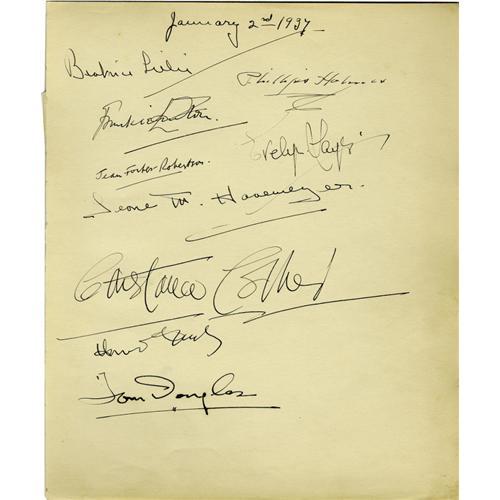 January 2nd 1937
Beatrice Lillie
Phillips Holmes
Evelyn Laye
Jean Forbes-Robertson.
M. Havemeyer.
Constance Collier
Tom Douglas